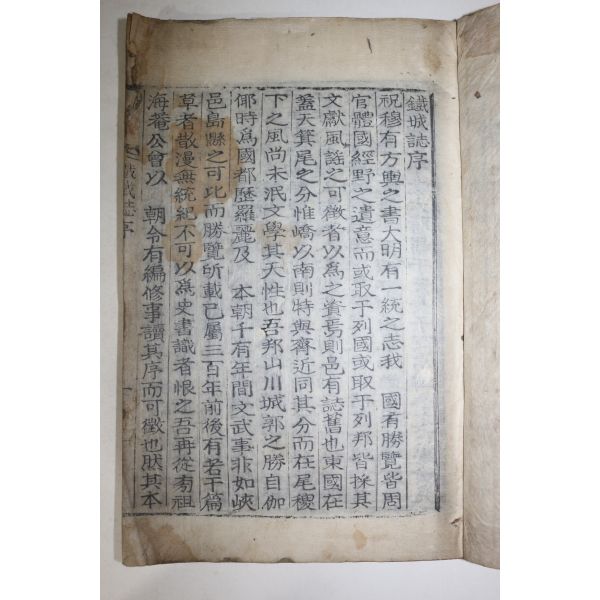 鐵城誌序
祝穆有方輿之書大明有一統之志我 國有勝覽皆周
官體國經野之遺意而或取于列國或取于列邦皆採其
文獻風謠之可徵者以爲之資焉則邑有誌舊也東國在
盖天箕尾之分惟嶠以南則特與齊近同其分而在尾稷
下之風尚未泯文學其天性也吾邦山川城郭之勝自伽
倻時爲國都歷羅麗及 本朝千有年間文武事非如峽
邑島縣之可比而勝覽所載已屬三百年前後有若干篇
草者散漫無統紀不可以爲史書識者恨之吾再從有祖
海菴公曾以 朝令有編修事讀其序而可徵也然其本
鐵城誌序
一